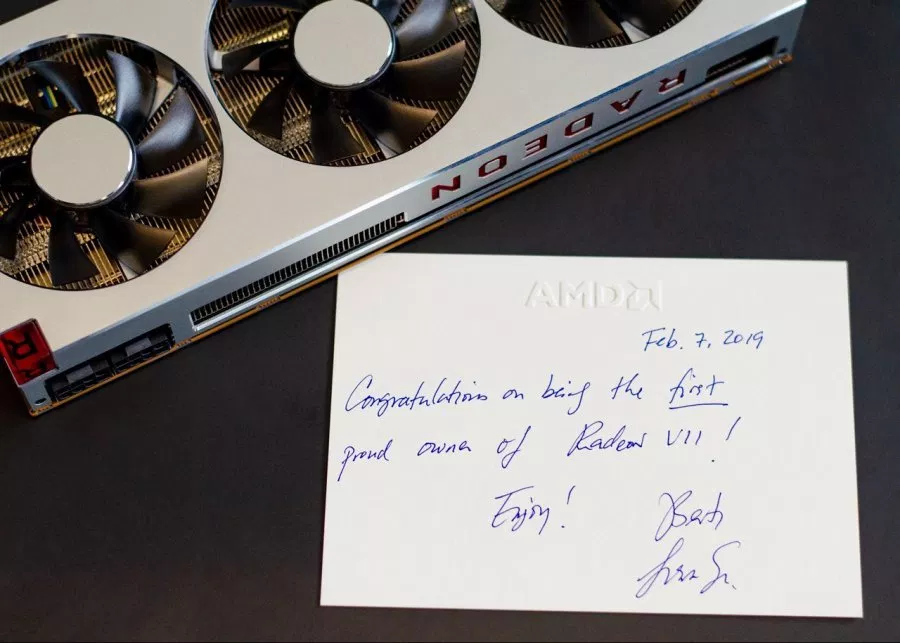 RADEON
R
AMD
Feb. 7, 2019
Congratulations on being the first
proud owner of Radeon VII!
Enjoy! Best,
Lisa Su